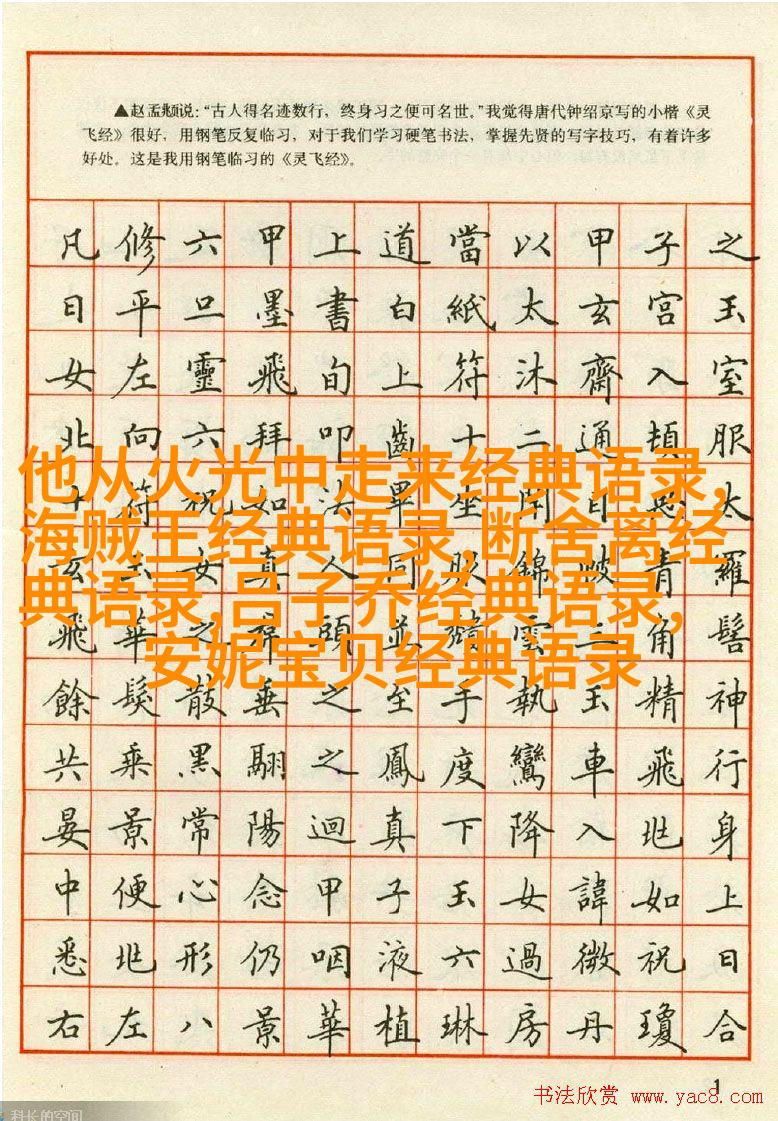 ▲赵孟頫说：“古人得名迹数行，终身习之便可名世。”我觉得唐代钟绍京写的小楷《灵
飞经》很好，用钢笔反复临习，对于我们学习硬笔书法，掌握先贤的写字技巧，有着许多
好处。这是我用钢笔临习的《灵飞经》。
凡修六甲上道當以甲子之
日平旦墨書白紙太玄宮玉
女左靈飛旬上符沐齋入室
北向六拜叩齒十二通頓服
十符祝如法畢坐閉目思太
他从火光中走来经典语录,
海贼王经典语录,断舍离经
典语录,吕子乔经典语录,
安妮宝贝经典语录
玄玉女真人同服錦帔青羅
飛華之帬頭並頹雲三角髻
餘髮散垂之至手執玉精神
共乘黑翮之鳳度鸞車飛行
晏景常陽迴真下降入此身
中便心念甲子玉女諱如上
悉此形仍咽液六過微祝曰
右左八景華植琳房丹瓊合
1
书法欣赏 www.yac8.com
科长的空间